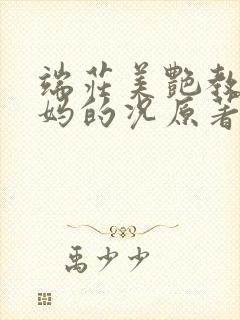 端庄美艳教
妈的沉原著
禹少少